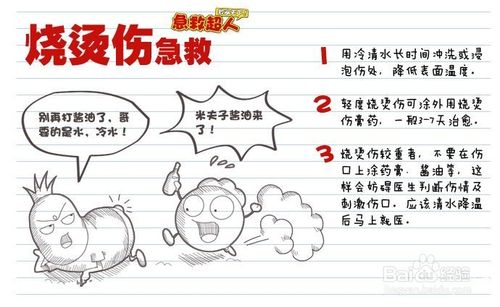 急救超人
烧烫伤急救
别再打酱油了，哥
要的是水，冷水！
米夫子酱油来
了！
1 用冷清水长时间冲洗或浸
泡伤处，降低表面温度。
2 轻度烧烫伤可涂外用烧烫
伤膏药，一般3-7天治愈。
3 烧烫伤较重者，不要在伤
口上涂药膏、酱油等，这
样会妨碍医生判断伤情及
刺激伤口。应该清水降温
后马上就医。
Baidu经验